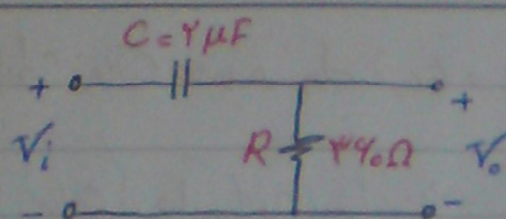 C = ۲ μF
+ +
Vi R ۳۹۰ Ω Vo
− −